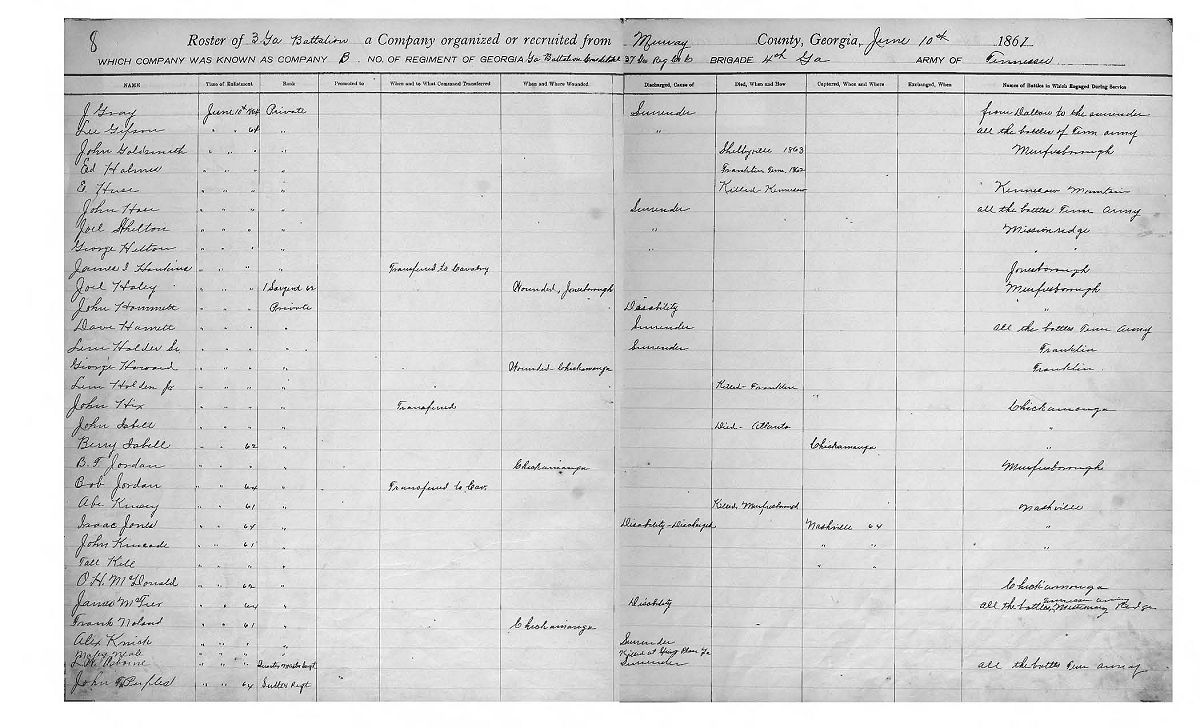 8 Roster of 3 Ga Battalion a Company organized or recruited from Murray County, Georgia, June 10th 1861
WHICH COMPANY WAS KNOWN AS COMPANY B. NO. OF REGIMENT OF GEORGIA Ga Battalion 37 Ga Reg BRIGADE 4th Ga ARMY OF Tennessee
NAME Time of Enlistment Rank Promoted to When and to What Command Transferred When and Where Wounded. Discharged, Cause of Died, When and How Captured, When and Where Exchanged, When Names of Battles in Which Engaged During Service
J Gray June 10th Private Surrender from Dalton to the surrender
Lee Gipson " " 64 " " all the battles of Tenn army
John Goldsmith " " " " Shelbyville 1863 Murfresborough
Ed Holmes " " " " Franklin Tenn. 1862
E Huse " " " " Killed Kennesaw Kennesaw Mountain
John Hase " " " " Surrender all the battles Tenn army
Joel Shelton " " " " " Missionredge
George Helton " " " " " " "
James I Hawkins " " " " Transferred to Cavalry Jonesborough
Joel Haley " " " 1 Sargend or Wounded, Jonesborough Murfresborough
John Hammett " " " Private Disability "
Dave Hamett " " " " Surrender all the battles Tenn army
Lem Holder Sr " " " " Surrender Franklin
George Howard " " " " Wounded- Chickamauga Franklin
Lem Holden Jr " " " " Killed- Franklin "
John Hix " " " " Transferred Chickamauga
John Isbell " " " " Died- Atlanta "
Berry Isbell " " 62 " Chickamauga
B. F Jordan " " " " Chickamauga Murfresborough
Bob Jordan " " 64 " Transferred to Cav.
Abe Kinsey " " 61 " Killed, Murfresborough Nashville
Isaac Jones " " 64 " Disability-Discharged Nashville 64 "
John Kincade " " 61 " " " "
Tall Kell " " " " "
O H. McDonald " " 62 " Chickamauga
James McTier " " 64 " Disability all the battles Missionary Redge
Frank Noland " " 61 " Chickamauga
Alex Knick " " " " Surrender
Neal Killed at Spring Place Ga
L. W. Osborne " " " Quarter master Sergt Surrender all the battles Tenn army
John " " 64 Sutler Regt